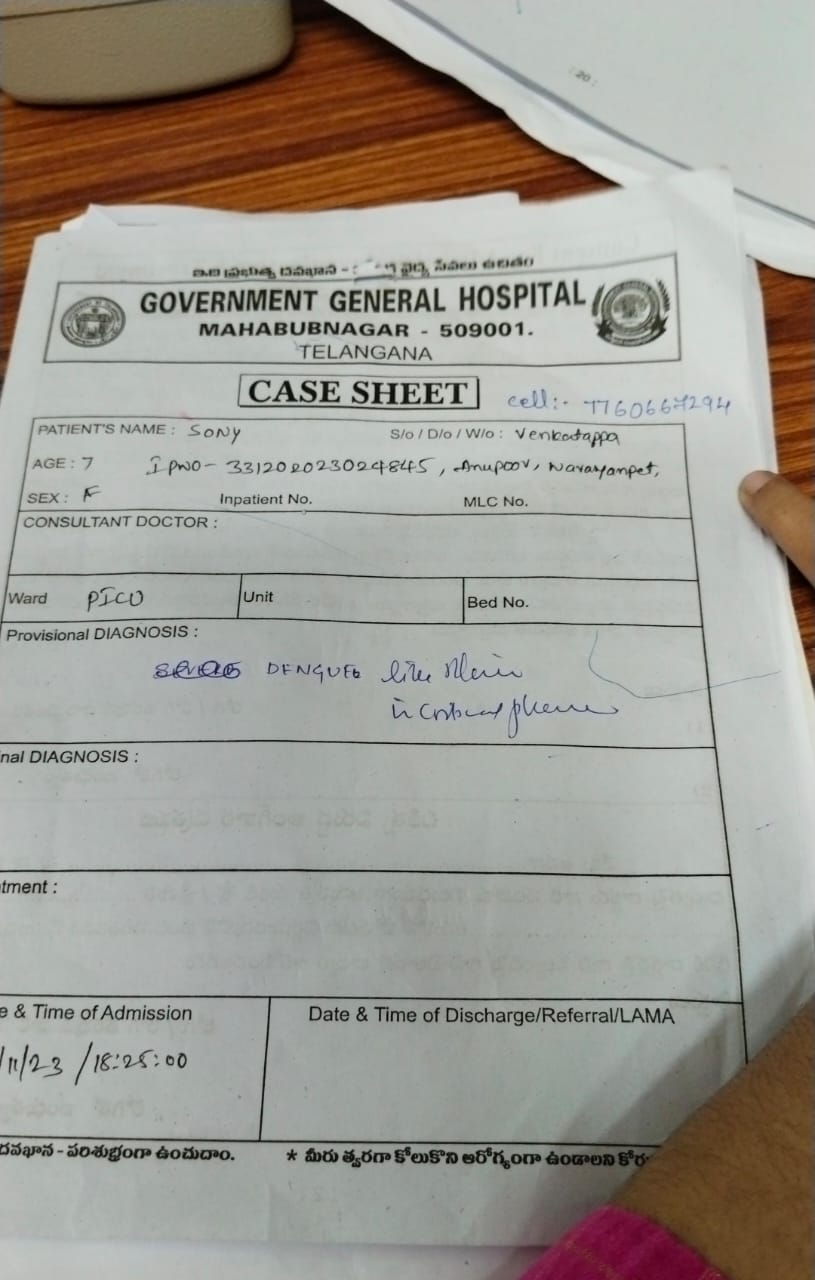 : 20 :
GOVERNMENT GENERAL HOSPITAL
MAHABUBNAGAR - 509001.
TELANGANA
CASE SHEET
cell:- 7760667294
PATIENT'S NAME : SONY S/o / D/o / W/o : Venkatappa
AGE : 7 IPNO- 331202023024845, Anupoor, Narayanpet,
SEX : F Inpatient No. MLC No.
CONSULTANT DOCTOR :
Ward PICU Unit Bed No.
Provisional DIAGNOSIS :
DENGUE like illness
in
nal DIAGNOSIS :
tment :
e & Time of Admission Date & Time of Discharge/Referral/LAMA
/11/23 /18:25:00
దవఖాన - పరిశుభ్రంగా ఉంచుదాం. * మీరు త్వరగా కోలుకొని ఆరోగ్యంగా ఉండాలని కోరు